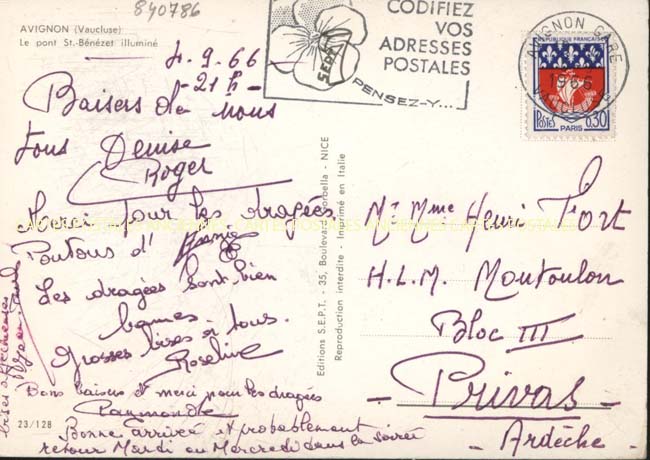 840786
AVIGNON (Vaucluse)
Le pont St.-Bénézet illuminé
4.9.66
-21h-
Baisers de nous
tous Denise
Roger
Merci pour les dragées
Poutous d'Annie
Les dragées sont bien
bonnes.
Grosses bises à tous.
Roseline
Bons baisers et merci pour les dragées
Raymonde
Bonne arrivée et probablement
retour Mardi ou Mercredi dans la soirée
bises affectueuses
23/128
Editions S.E.P.T. - 35, Boulevard Gorbella - NICE
Reproduction interdite - Imprimé en Italie
CODIFIEZ
VOS
ADRESSES
POSTALES
PENSEZ-Y...
AVIGNON GARE
1966
VAUCLUSE
REPUBLIQUE FRANCAISE
POSTES
0,30
PARIS
Mr Mme Henri Fort
H.L.M. Montoulon
Bloc III
- Privas -
- Ardèche -
CARTES POSTALES ANCIENNES